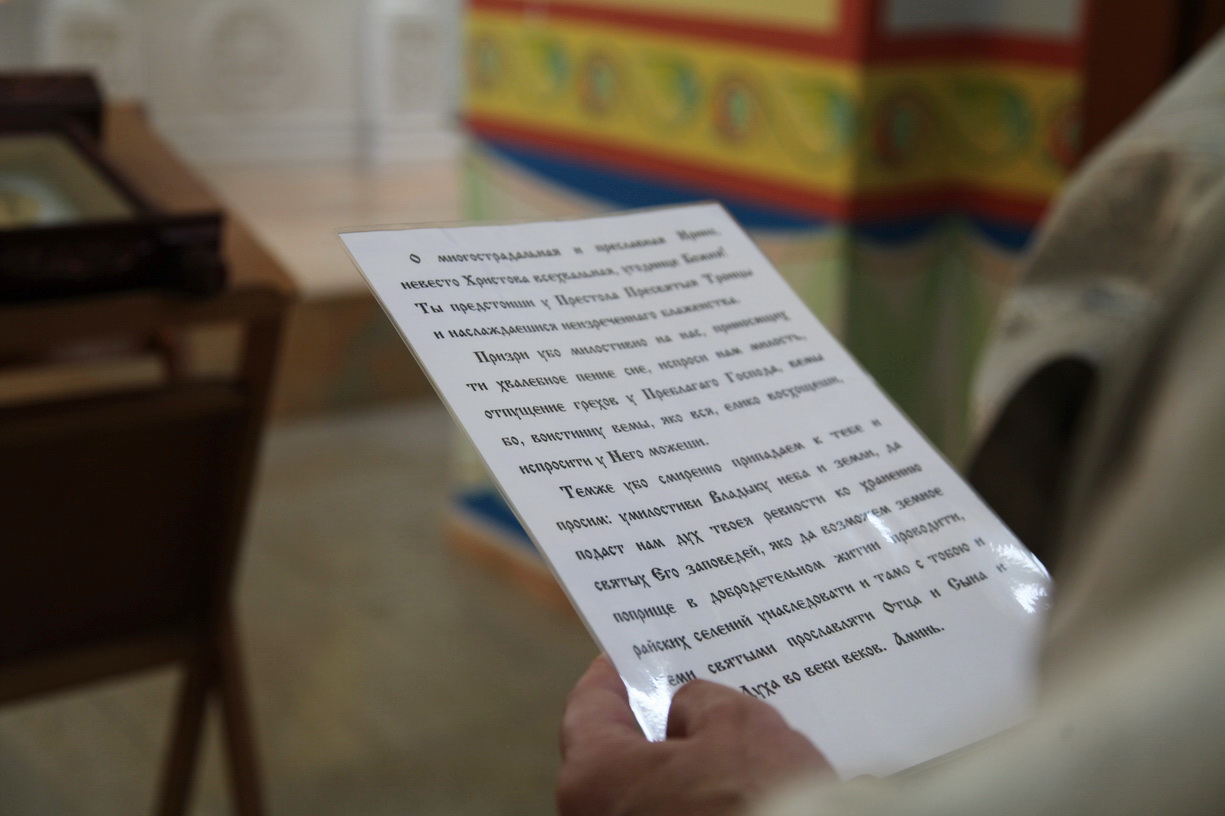 О многострадальная и преславная Ирино,
невесто Христова всехвальная, угоднице Божия!
Ты предстоиши у Престола Пресвятыя Троицы
и наслаждаешися неизреченнаго блаженства.
Призри убо милостивно на нас, приносящих
ти хвалебное пение сие, испроси нам милость,
отпущение грехов у Преблагаго Господа, вемы
бо, воистинну вемы, яко вся, елико восхощеши,
испросити у Него можеши.
Темже убо смиренно припадаем к тебе и
просим: умилостиви Владыку неба и земли, да
подаст нам дух твоея ревности ко хранению
святых Его заповедей, яко да возможем земное
поприще в добродетельном житии проводити,
райских селений унаследовати и тамо с тобою и
еми святыми прославляти Отца и Сына и
Духа во веки веков. Аминь.